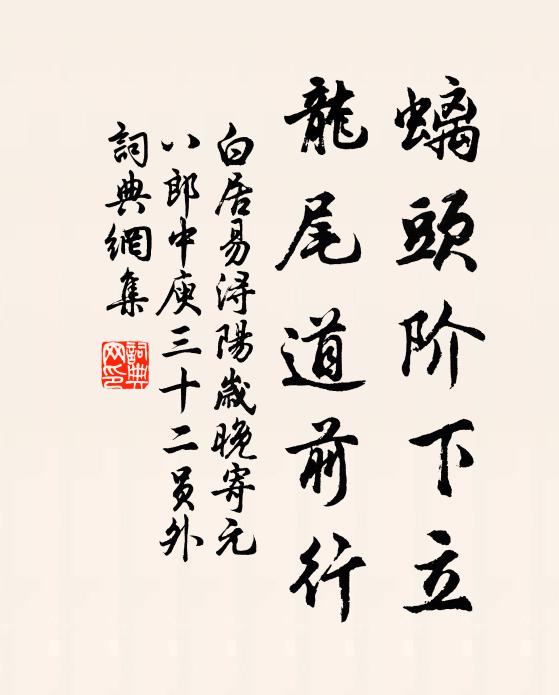 螭頭阶下立
龍尾道前行
白居易浔陽歲晚寄元
八郎中庾三十二員外
詞典網集
詞典
网印